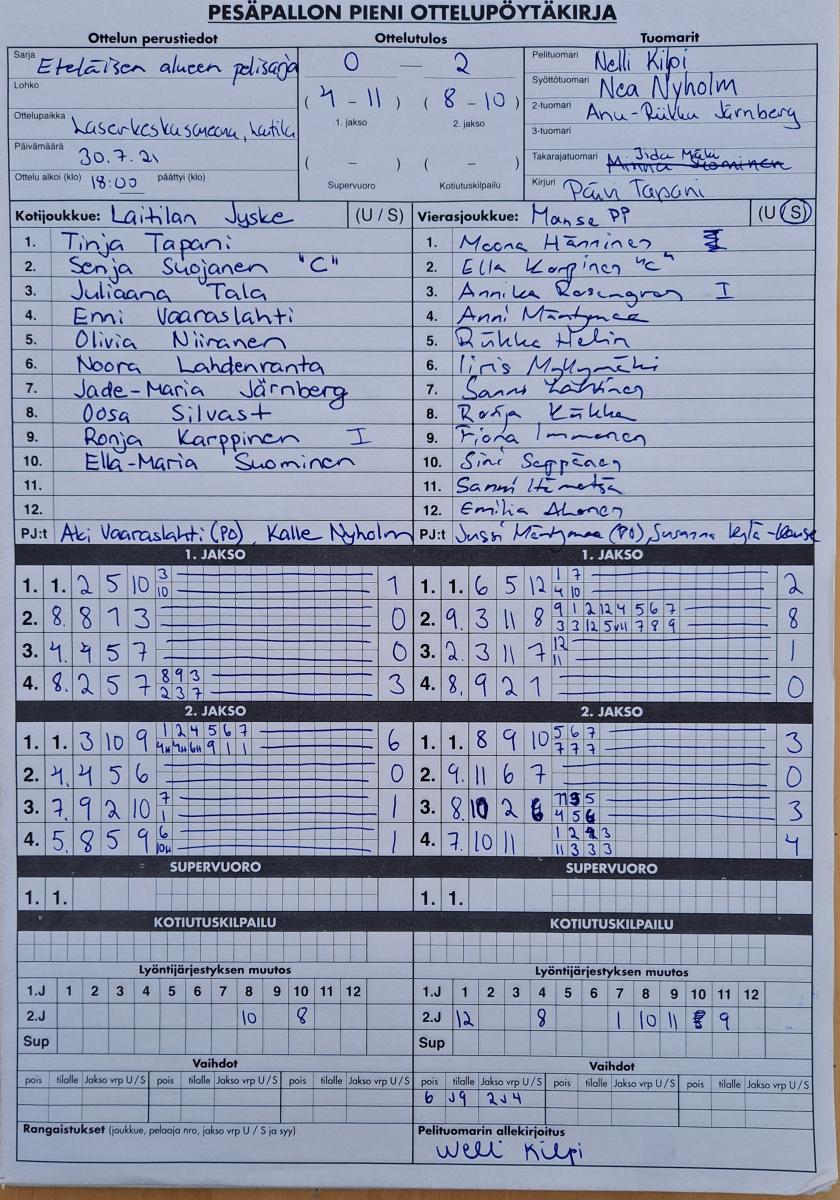 PESÄPALLON PIENI OTTELUPÖYTÄKIRJA
Ottelun perustiedot
Sarja Eteläisen alueen pelisarja
Lohko
Ottelupaikka Laserkeskusareena, Laitila
Päivämäärä 30.7.21
Ottelu alkoi (klo) 18:00 päättyi (klo)
Ottelutulos
0 — 2
( 4 - 11 ) ( 8 - 10 )
1. jakso 2. jakso
( - ) ( - )
Supervuoro Kotiutuskilpailu
Tuomarit
Pelituomari Nelli Kilpi
Syöttötuomari Nea Nyholm
2-tuomari Anu-Riikka Järnberg
3-tuomari
Takarajatuomari Jida Mäki
Minna Suominen
Kirjuri Päivi Tapani
Kotijoukkue: Laitilan Jyske (U / S)
1. Tinja Tapani
2. Senja Suojanen "C"
3. Juliaana Tala
4. Enni Vaaraslahti
5. Olivia Niiranen
6. Noora Lahdenranta
7. Jade-Maria Järnberg
8. Oosa Silvast
9. Ronja Karppinen I
10. Ella-Maria Suominen
11.
12.
PJ:t Aki Vaaraslahti (PO), Kalle Nyholm
Vierasjoukkue: Manse PP (U / S)
1. Meona Hänninen
2. Ella Korpinen "C"
3. Annika Rosengren I
4. Anni Mäntymaa
5. Riikka Helin
6. Iiris Myllymäki
7. Sanni Lahtinen
8. Ronja Kiikka
9. Fiona Immonen
10. Sini Seppänen
11. Sanni Hämetsä
12. Emilia Ahonen
PJ:t Jussi Mäntymaa (PO), Susanna Kylä-
1. JAKSO
1. 1. 2 5 10 3 1
10
2. 8. 8 1 3 0
3. 4. 4 5 7 0
4. 8. 2 5 7 8 9 3 3
2 3 7
2. JAKSO
1. 1. 3 10 9 1 2 4 5 6 7 6
4H 4H 6H 9 1 1
2. 4. 4 5 6 0
3. 7. 9 2 10 7 1
1
4. 5. 8 5 9 6 1
10H
SUPERVUORO
1. 1.
KOTIUTUSKILPAILU
Lyöntijärjestyksen muutos
1.J 1 2 3 4 5 6 7 8 9 10 11 12
2.J 10 8
Sup
Vaihdot
pois tilalle Jakso vrp U / S pois tilalle Jakso vrp U / S pois tilalle Jakso vrp U / S
Rangaistukset (joukkue, pelaaja nro, jakso vrp U / S ja syy)
1. JAKSO
1. 1. 6 5 12 1 7 2
4 10
2. 9. 3 11 8 9 1 2 12 4 5 6 7 8
3 3 12 5 7 8 9
3. 2. 3 11 7 12 1
11
4. 8. 9 2 1 0
2. JAKSO
1. 1. 8 9 10 5 6 7 3
7 7 7
2. 9. 11 6 7 0
3. 8. 10 2 6 3
4 5 6
4. 7. 10 11 1 2 3 4
11 3 3 3
SUPERVUORO
1. 1.
KOTIUTUSKILPAILU
Lyöntijärjestyksen muutos
1.J 1 2 3 4 5 6 7 8 9 10 11 12
2.J 12 8 1 10 11 9
Sup
Vaihdot
pois tilalle Jakso vrp U / S pois tilalle Jakso vrp U / S pois tilalle Jakso vrp U / S
6 J9 2J4
Pelituomarin allekirjoitus
Nelli Kilpi